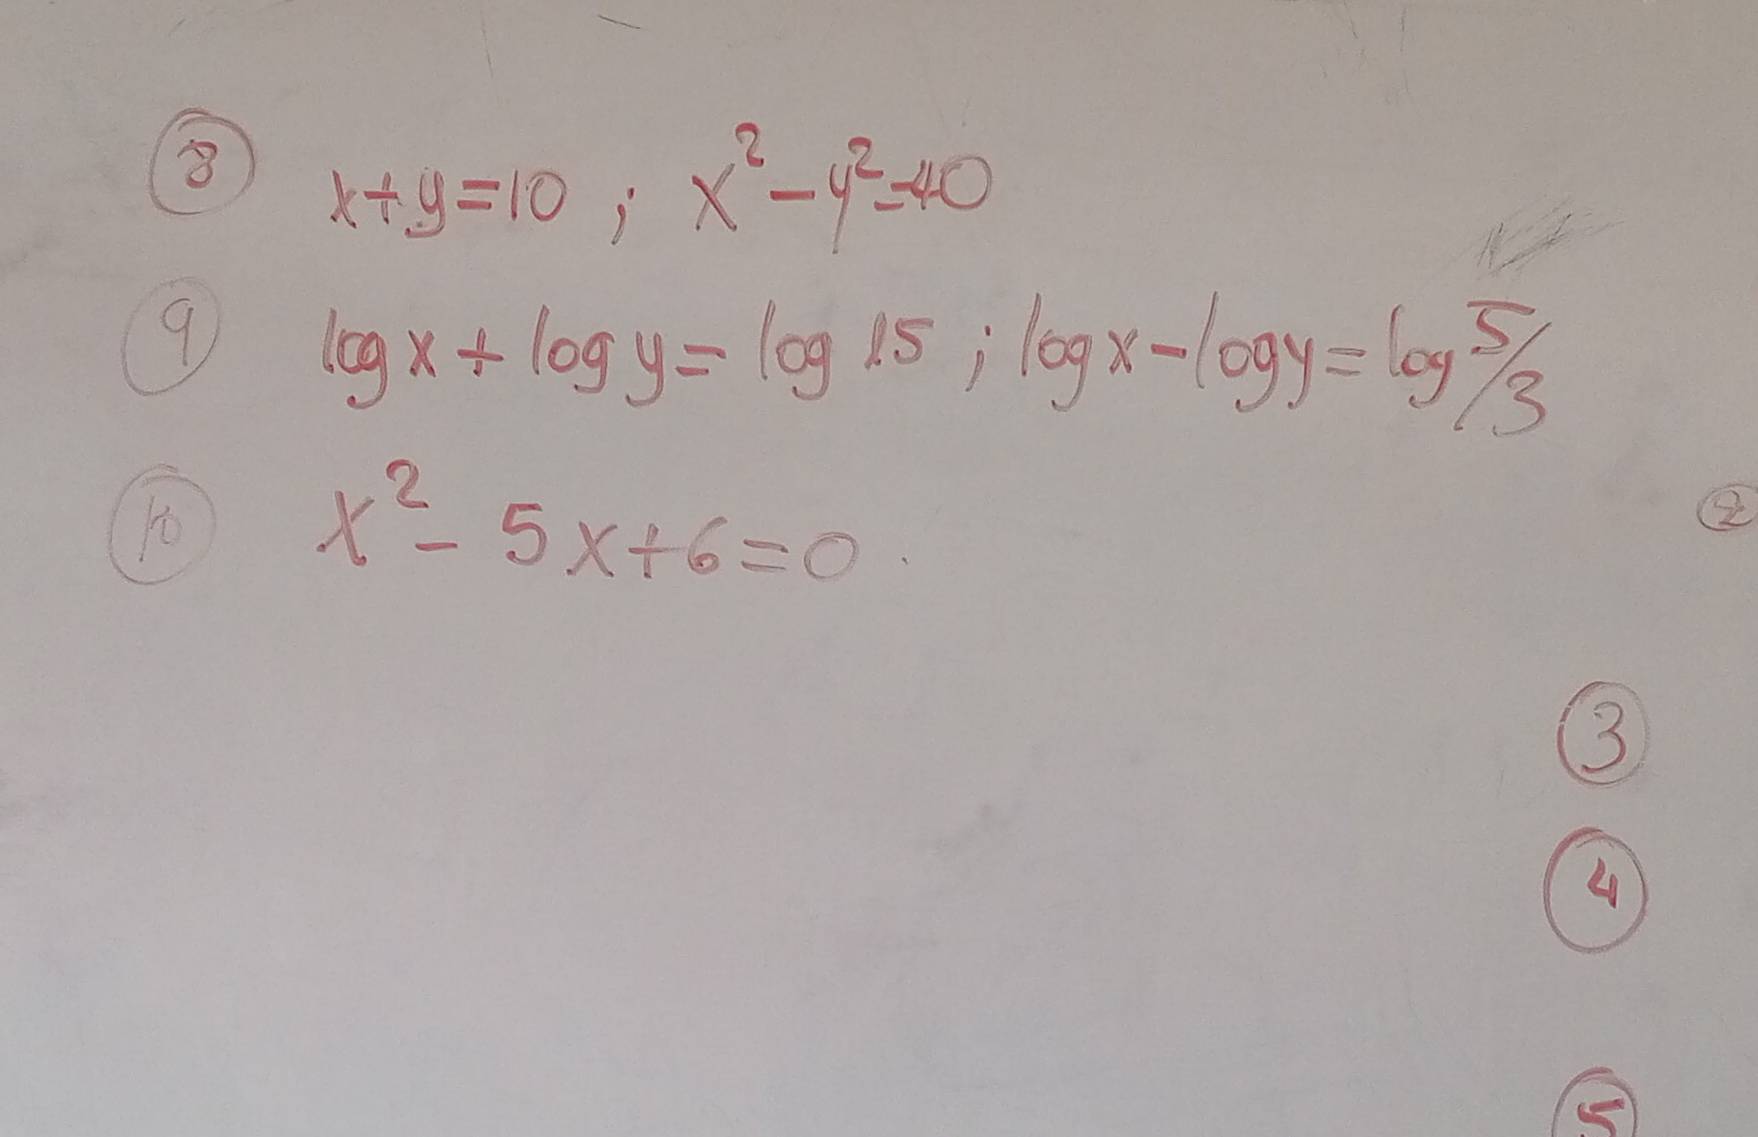 8 x+y=10 ; x²-y²=40
9 log x + log y = log 15 ; log x - log y = log 5/3
10 x² - 5x+6=0.
2
3
4
5